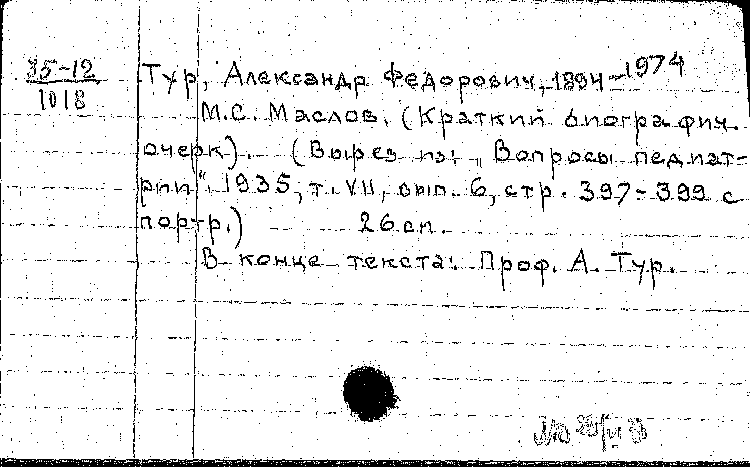 35-12
1018
Тур, Александр Федорович, 1894-1974
М.С. Маслов. (Краткий биографич.
очерк). (Вырез из: „Вопросы педиат-
рии", 1935, т. VII, вып. 6, стр. 397-399 с
портр.) 26 см.
В конце текста: Проф. А. Тур.